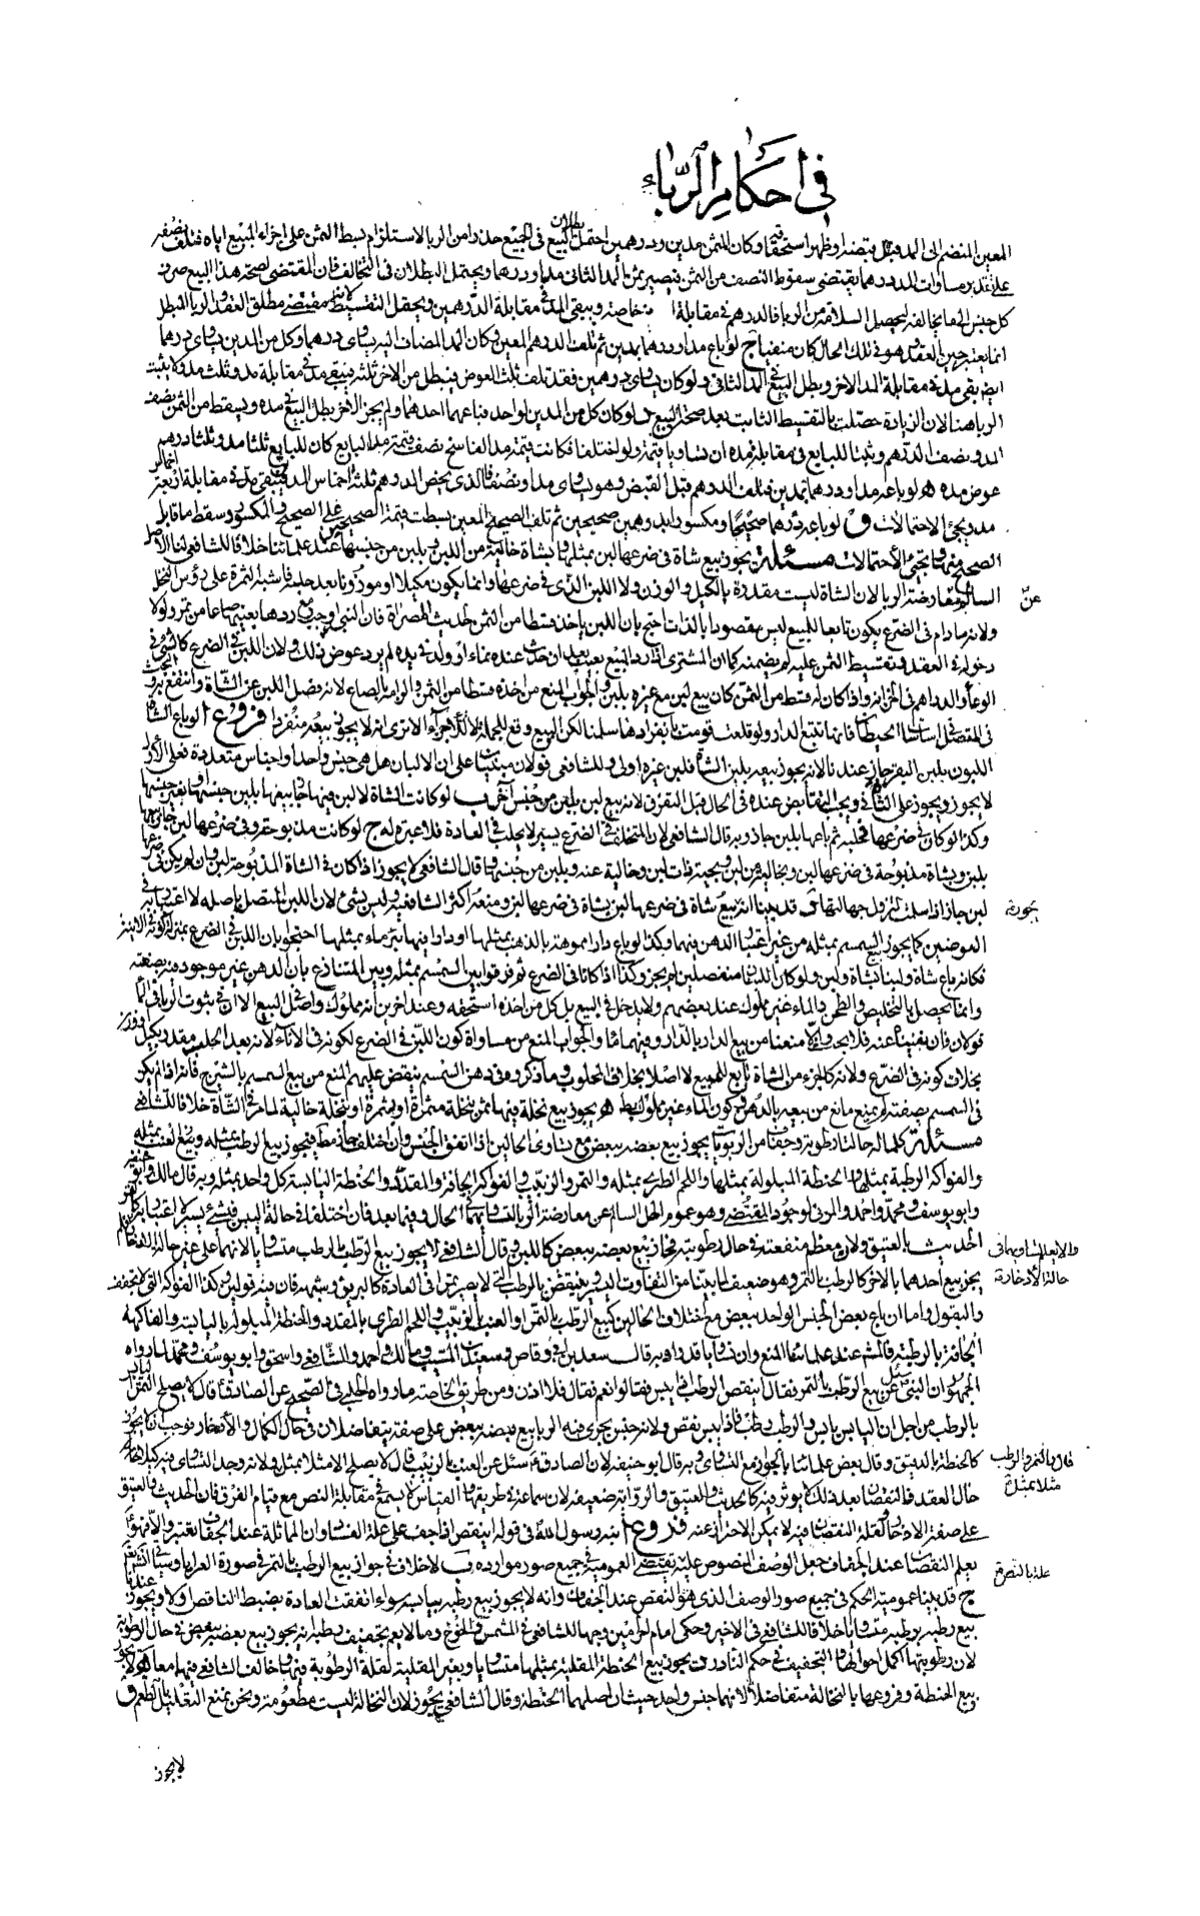 في احكام الرباء
المعين المنضم الى المد قبل قبضه او ظهر استحقاقه وكان الثمن مدين ودرهمين احتمل بطلان البيع في الجميع حذرا من الربا لاستلزام بسط الثمن على اجزاء المبيع اياه فتلف نصفه
على تقدير مساوات المد درهما يقتضى سقوط النصف من الثمن فيصير بمثل المد الثانى مدا ودرهما ويحتمل البطلان فى التخالف فان المقتضى لصحة هذا البيع صرف
كل جنس الى ما يخالفه ليحصل السلامة من الربا فالدرهم في مقابلة خاصة ويبقى المد في مقابلة الدرهمين ويحتمل التقسيط لانه مقتضى مطلق العقد والربا المبطل
انما يعتبر حين العقد وهو في تلك الحال كان منفيا ج لو باع مدا ودرهما بمدين ثم تلف الدرهم المعين وكان المد المضاف اليه يساوى درهما وكل من المدين يساوى درهما
ايضا بقى مد في مقابلة المد الاخر وبطل البيع في المد الثانى ولو كان يساوى درهمين فقد تلف ثلث العوض فيبطل من الاخر ثلثه فيبقى مد في مقابلة مد وثلث مد ولا يثبت
الربا هنا لان الزيادة حصلت بالتقسيط الثابت بعد صحة البيع د لو كان كل من المدين لواحد فباعهما احدهما ولم يجز الاخر بطل البيع في مده ويسقط من الثمن نصف
المد ونصف الدرهم ويثبت للبايع في مقابلة مده ان تساويا قيمة ولو اختلفا فكانت قيمة مد الفاسخ نصف قيمة مد البايع كان للبايع ثلثا مد وثلثا درهم
عوض مده ه لو باعه مدا ودرهما بمدين فتلف الدرهم قبل القبض وهو يساوى مدا ونصفا فالذى يخص الدرهم ثلثة اخماس المدين فيبقى مد في مقابلة اربعة اخماس
مد ويجئ الاحتمالات و لو باعه درهما صحيحا ومكسورا بدرهمين صحيحين ثم تلف الصحيح المعين بسطت قيمة الصحيحين على الصحيح والمكسور وسقط ما قابل
الصحيح منهما ويجئ الاحتمالات مسئلة يجوز بيع شاة في ضرعها لبن بمثلها وبشاة خالية من اللبن وبلبن من جنسها عند علمائنا خلافا للشافعى لنا الاصل
السالم عن معارضة الربا لان الشاة ليست مقدرة بالكيل والوزن ولا اللبن الذى في ضرعها وانما يكون مكيلا او موزونا بعد حلبه فاشبه الثمرة على رؤس النخل
ولانه مادام في الضرع يكون تابعا للمبيع ليس مقصودا بالذات احتج بان اللبن ياخذ قسطا من الثمن لحديث المصراة فان النبى اوجب مع ردها بعينها صاعا من تمر ولولا
دخوله في العقد وتقسيط الثمن عليه لم يضمنه كما ان المشترى اذا رد المبيع بعيب بعد ان حدث عنده نماء او ولد في يده لم يرد عوض ذلك ولان اللبن في الضرع كالشئ في
الوعاء والدراهم في الخزانة واذا كان له قسط من الثمن كان بيع لبن مع غيره بلبن والجواب المنع من اخذه قسطا من الثمن والزامه بالصاع لانه فصل اللبن عن الشاة وانتفع به والبحث
في المتصل اساسات الحيطان فانها تتبع الدار ولو قلعت قومت بانفرادها سلمنا لكن المبيع وقع للجملة لا للاجزاء الا ترى انه لا يجوز بيعه منفردا فروع ا لو باع الشاة
اللبون بلبن البقر جاز عندنا لانه يجوز بيعه بلبن الشاة فلبن غيره اولى وللشافعى قولان مبنيان على ان الالبان هل هى جنس واحد او اجناس متعددة فعلى الاول
لا يجوز ويجوز على الثانى ويجب التقابض عنده في الحال قبل التفرق لانه بيع لبن بلبن من جنس اخر ب لو كانت الشاة لا لبن فيها جاز بيعها بلبن جنسها او بغير جنسها
وكذا لو كان في ضرعها فحلبه ثم باعها بلبن جاز وبه قال الشافعى لان المتخلف في الضرع يسير لا يحلب في العادة فلا عبرة له ج لو كانت مذبوحة وفي ضرعها لبن جاز بيعها
بلبن وبشاة مذبوحة في ضرعها لبن وبخالية من لبن وبحية ذات لبن وخالية عنه وبلبن من جنسها وقال الشافعى لا يجوز اذا كان في الشاة المذبوحة لبن وان لم يكن في ضرعها
لبن جاز اذا سلخت لزوال جهالتها د قد بينا انه يجوز بيع شاة في ضرعها لبن بشاة في ضرعها لبن ومنعه اكثر الشافعية وليس بشئ لان اللبن المتصل باصله لا اعتبار به في
العوضين كما يجوز بيع السمسم بمثله من غير اعتبار الدهن فيهما وكذا لو باع دارا مموهة بالذهب بمثلها او دارا فيها بئر ماء بمثلها احتجوا بان اللبن في الضرع بمنزلة كونه في الانية
فكانه باع شاة ولبنا بشاة ولبن ولو كان اللبنان منفصلين لم يجز وكذا اذا كانا في الضرع ثم فرقوا بين السمسم بمثله وبين المتنازع بان الدهن غير موجود فيه بصفته
وانما يحصل بالتخليص والطحن والماء غير مملوك عند بعضهم ولا يدخل في البيع بل كل من اخذه استحقه وعند اخرين انه مملوك داخل في البيع الا ان في ثبوت الربا في الماء
قولان فان نفيناه عنه فلا بحث والا منعنا من بيع الدار بالدار وفيهما ماء والجواب المنع من مساواة كون اللبن في الضرع لكونه في الاناء لانه بعد الحلب مقدر بكيل او وزن
بخلاف كونه في الضرع ولانه كالجزء من الشاة تابع للمبيع لا اصلا بخلاف المحلوب وما ذكروه في دهن السمسم ينقض عليهم المنع من بيع السمسم بالشيرج فانه اذا لم يكن
في السمسم بصفته لم يمنع مانع من بيعه بالدهن وكون الماء غير مملوك باطل ه يجوز بيع نخلة فيها تمر بنخلة مثمرة او بثمرة او بنخلة خالية لما مر في الشاة خلافا للشافعى
مسئلة كل ما له حالتا رطوبة وجفاف من الربويات يجوز بيع بعضه ببعض مع تساوى الحالين اذا اتفق الجنس وان اختلف جاز مطلقا فيجوز بيع الرطب بمثله وبيع العنب بمثله
والفواكه الرطبة بمثلها والحنطة المبلولة بمثلها واللحم الطرى بمثله والتمر والزبيب والفواكه الجافة والمقدد والحنطة اليابسة كل واحد بمثله وبه قال مالك وابو حنيفة
وابو يوسف ومحمد واحمد والمزنى لوجود المقتضى وهو عموم الحل السالم عن معارضة الربا لتساويهما في الحال وفيما بعد فان اختلفا في حالة اليبس فبشئ يسير لا اعتبار به
الحديث بالعتيق ولان معظم منفعته في حال رطوبته فجاز بيع بعضه ببعض كاللبن وقال الشافعى لا يجوز بيع الرطب بالرطب متساويا لانهما على غير حالة الادخار فلم
يجز بيع احدهما بالاخر كالرطب بالتمر وهو ضعيف لما بينا من التفاوت اليسير وينتقض بالرطب التى لا يصير تمرا في العادة كالبربن وشبهه فان فيه قولين وكذا الفواكه التى لا تجفف
والبقول واما ان باع بعض الجنس الواحد ببعض مع اختلاف الحالين كبيع الرطب بالتمر او العنب بالزبيب واللحم الطرى بالمقدد والحنطة المبلولة باليابسة والفاكهة
الجافة بالرطبة فالمشهور عند علمائنا المنع وان تساويا قدرا وبه قال سعد بن ابى وقاص وسعيد بن المسيب ومالك واحمد والشافعى واسحق وابو يوسف ومحمد لما رواه
الجمهور ان النبى سئل عن بيع الرطب بالتمر فقال اينقص الرطب اذا يبس فقالوا نعم فقال فلا اذن ومن طريق الخاصة ما رواه الحلبى في الصحيح عن الصادق قال لا يصلح التمر اليابس
بالرطب من اجل ان اليابس يابس والرطب رطب فاذا يبس نقص ولانه جنس يجرى فيه الربا بيع بعضه ببعض على صفة يتفاضلان في حال الكمال والادخار فوجب ان لا يجوز
كالحنطة بالدقيق وقال بعض علمائنا بالجواز مع التساوى وبه قال ابو حنيفة لان الصادق سئل عن العنب بالزبيب قال لا يصلح الا مثلا بمثل ولانه وجد التساوى فيهما كيلا
حال العقد فالنقصان بعد ذلك لا يؤثر فيه كالحديث والعتيق والرواية ضعيفة لان سماعة في طريقها والقياس لا يسمع في مقابلة النص مع قيام الفرق فان الحديث والعتيق
على صفة الادخار ولقلة النقصان فيه لا يمكن الاحتراز عنه فروع ا نبه رسول الله في قوله اينقص اذا جف على علة الفساد وان المماثلة عند الجفاف تعتبر والا فهو
يعلم النقصان عند الجفاف جعل الوصف المنصوص عليه يقتضى العمومية في جميع صور موارده ب لا خلاف في جواز بيع الرطب بالتمر في صورة العرايا وسياتى
ج قد بينا عمومية الحكم في جميع صور الوصف الذى هو النقص عند الجفاف وانه لا يجوز بيع رطبه بيابسه سواء اتفقت العادة بضبط الناقص او لا ويجوز
بيع رطبه برطبه متساويا خلافا للشافعى في الاخير وحكى امام الحرمين وجها للشافعى في المشمش والخوخ وما لا يعم تجفيف رطبه انه يجوز بيع بعضه ببعض في حال الرطوبة
لان رطوبتها اكمل احوالها والتجفيف في حكم النادر د يجوز بيع الحنطة المقلية بمثلها متساويا وبغير المقلية لقلة الرطوبة فيها وخالف الشافعى فيهما معا ه لا يجوز
بيع الحنطة وفروعها بالنخالة متفاضلا لانهما جنس واحد حيث ان اصلهما الحنطة وقال الشافعى يجوز لان النخالة ليست مطعومة ونحن نمنع التعليل بالطعم و
عن
يجوز
والا يعلم تساويهما في
حالة الادخار
قال والتمر والرطب
مثلا بمثل
علة بالتصرف
لا يجوز